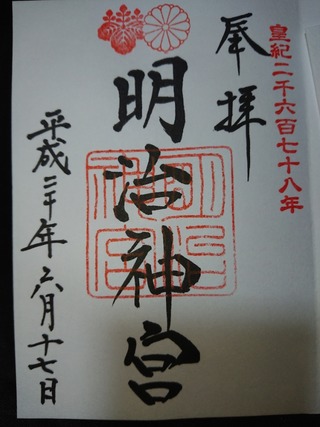 皇紀二千六百七十八年
奉拝
明治神宮
明治
神宮
平成三十年六月十七日